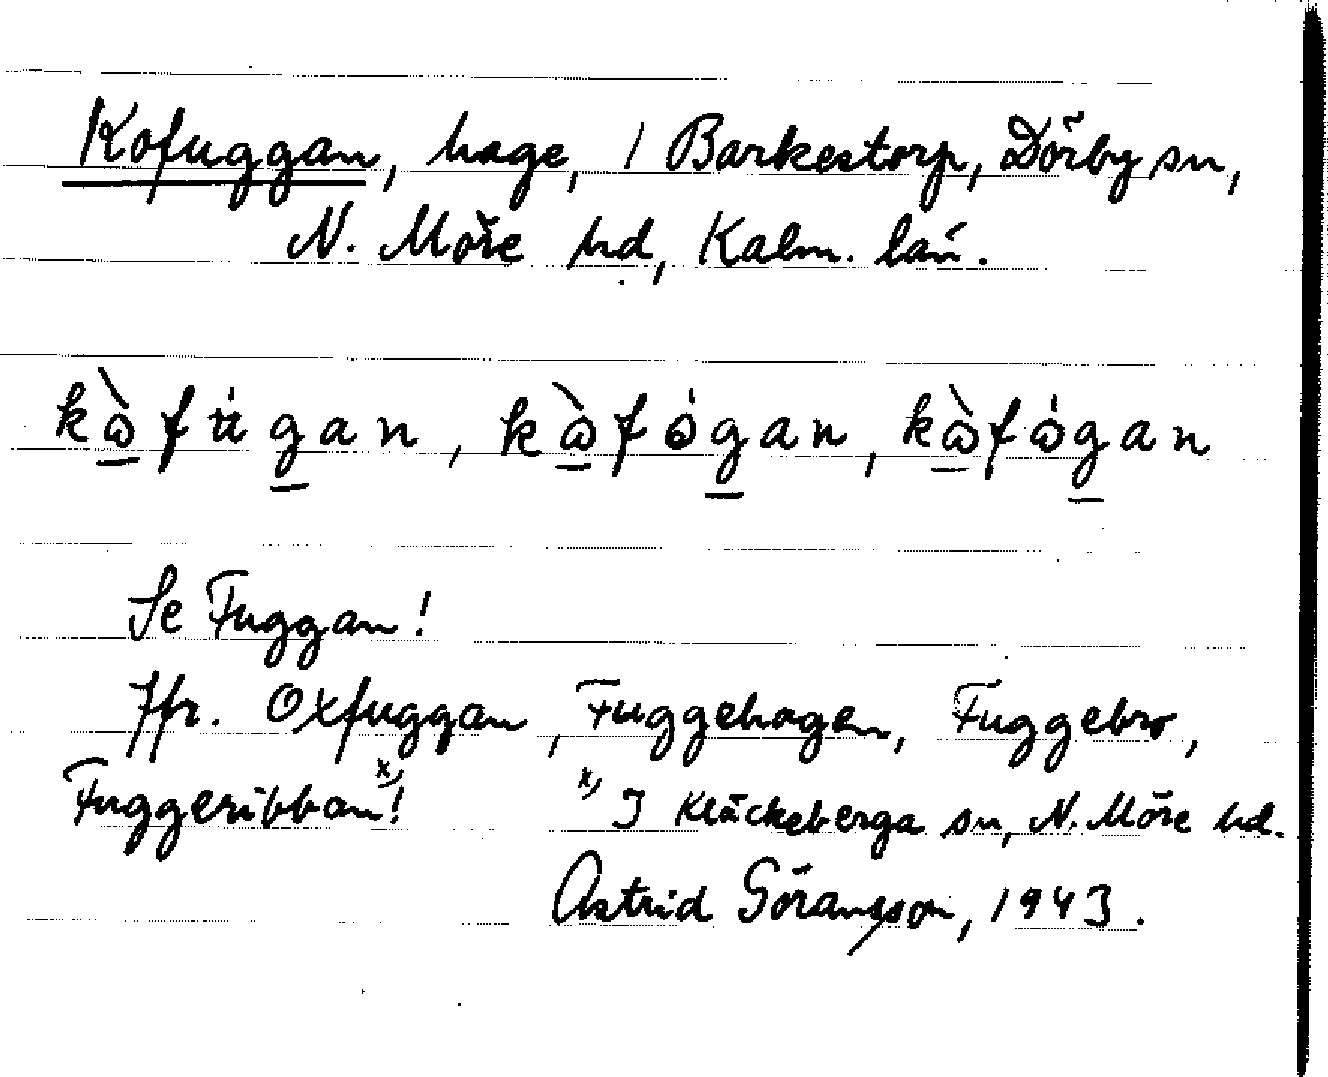 Kofuggan, hage, 1 Barkestorp, Dörby sn,
N. Möre hd, Kalm. län.
kò̱fu̇g̱an, kò̱fȯg̱an, kò̱fȯg̱an
Se Fuggan!
Jfr. Oxfuggan, Fuggehagen, Fuggebro,
Fuggeribban x)! x) I Kläckeberga sn, N. Möre hd.
Astrid Göransson, 1943.